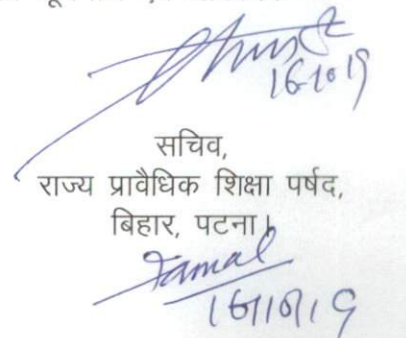 16.10.19
सचिव,
राज्य प्रावैधिक शिक्षा पर्षद,
बिहार, पटना।
16/10/19